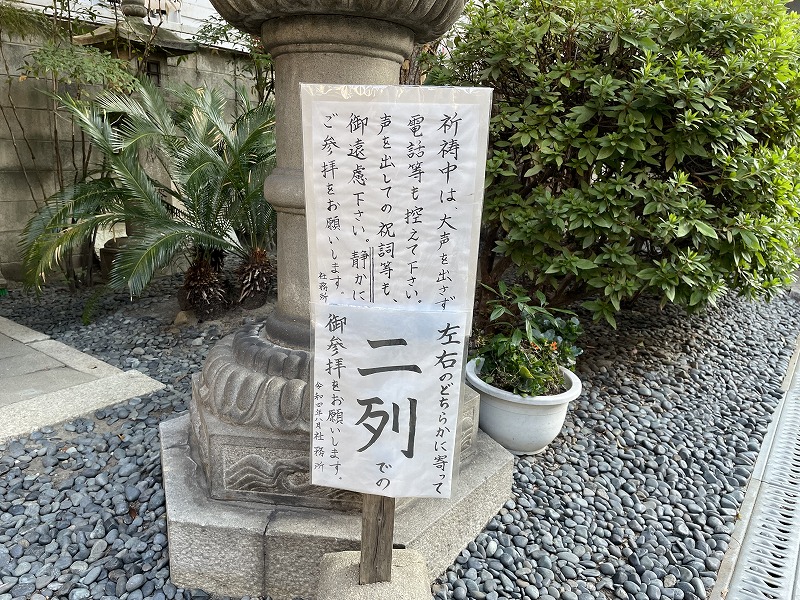 祈祷中は、大声を出さず
電話等も控えて下さい、
声を出しての祝詞等も、
御遠慮下さい。静かに
ご参拝をお願いします。
社務所
左右のどちらかに寄って
二列での
御参拝をお願いします。
令和四年八月社務所